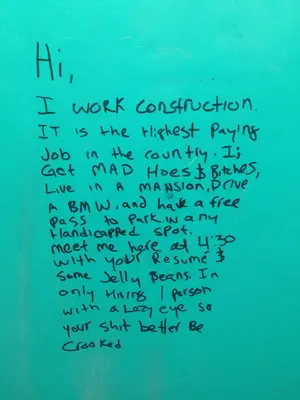 Hi,
I WORK CONSTRUCTION.
IT is the Highest Paying
Job in the country. I;
Get MAD Hoes $ Bitches,
Live in A MANSION, DRIVE
A BMW, and have a free
pass to Park in any
Handicapped spot.
meet me here at 4:30
with your Resume $
Some Jelly Beans. Im
only Hiring 1 person
with a Lazy eye so
your shit better Be
Crooked